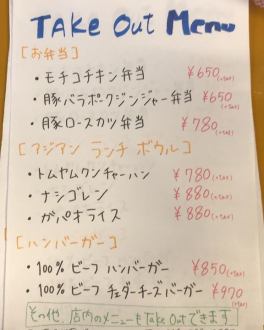 Take Out Menu
[お弁当]
・モチコチキン弁当 ¥650(+tax)
・豚バラポークジンジャー弁当 ¥650(+tax)
・豚ロースカツ弁当 ¥780(+tax)
[アジアン ランチ ボウル]
・トムヤムクンチャーハン ¥780(+tax)
・ナシゴレン ¥880(+tax)
・ガパオライス ¥880(+tax)
[ハンバーガー]
・100% ビーフ ハンバーガー ¥850(+tax)
・100% ビーフ チェダーチーズバーガー ¥970(+tax)
その他、店内のメニューもTake Outできます